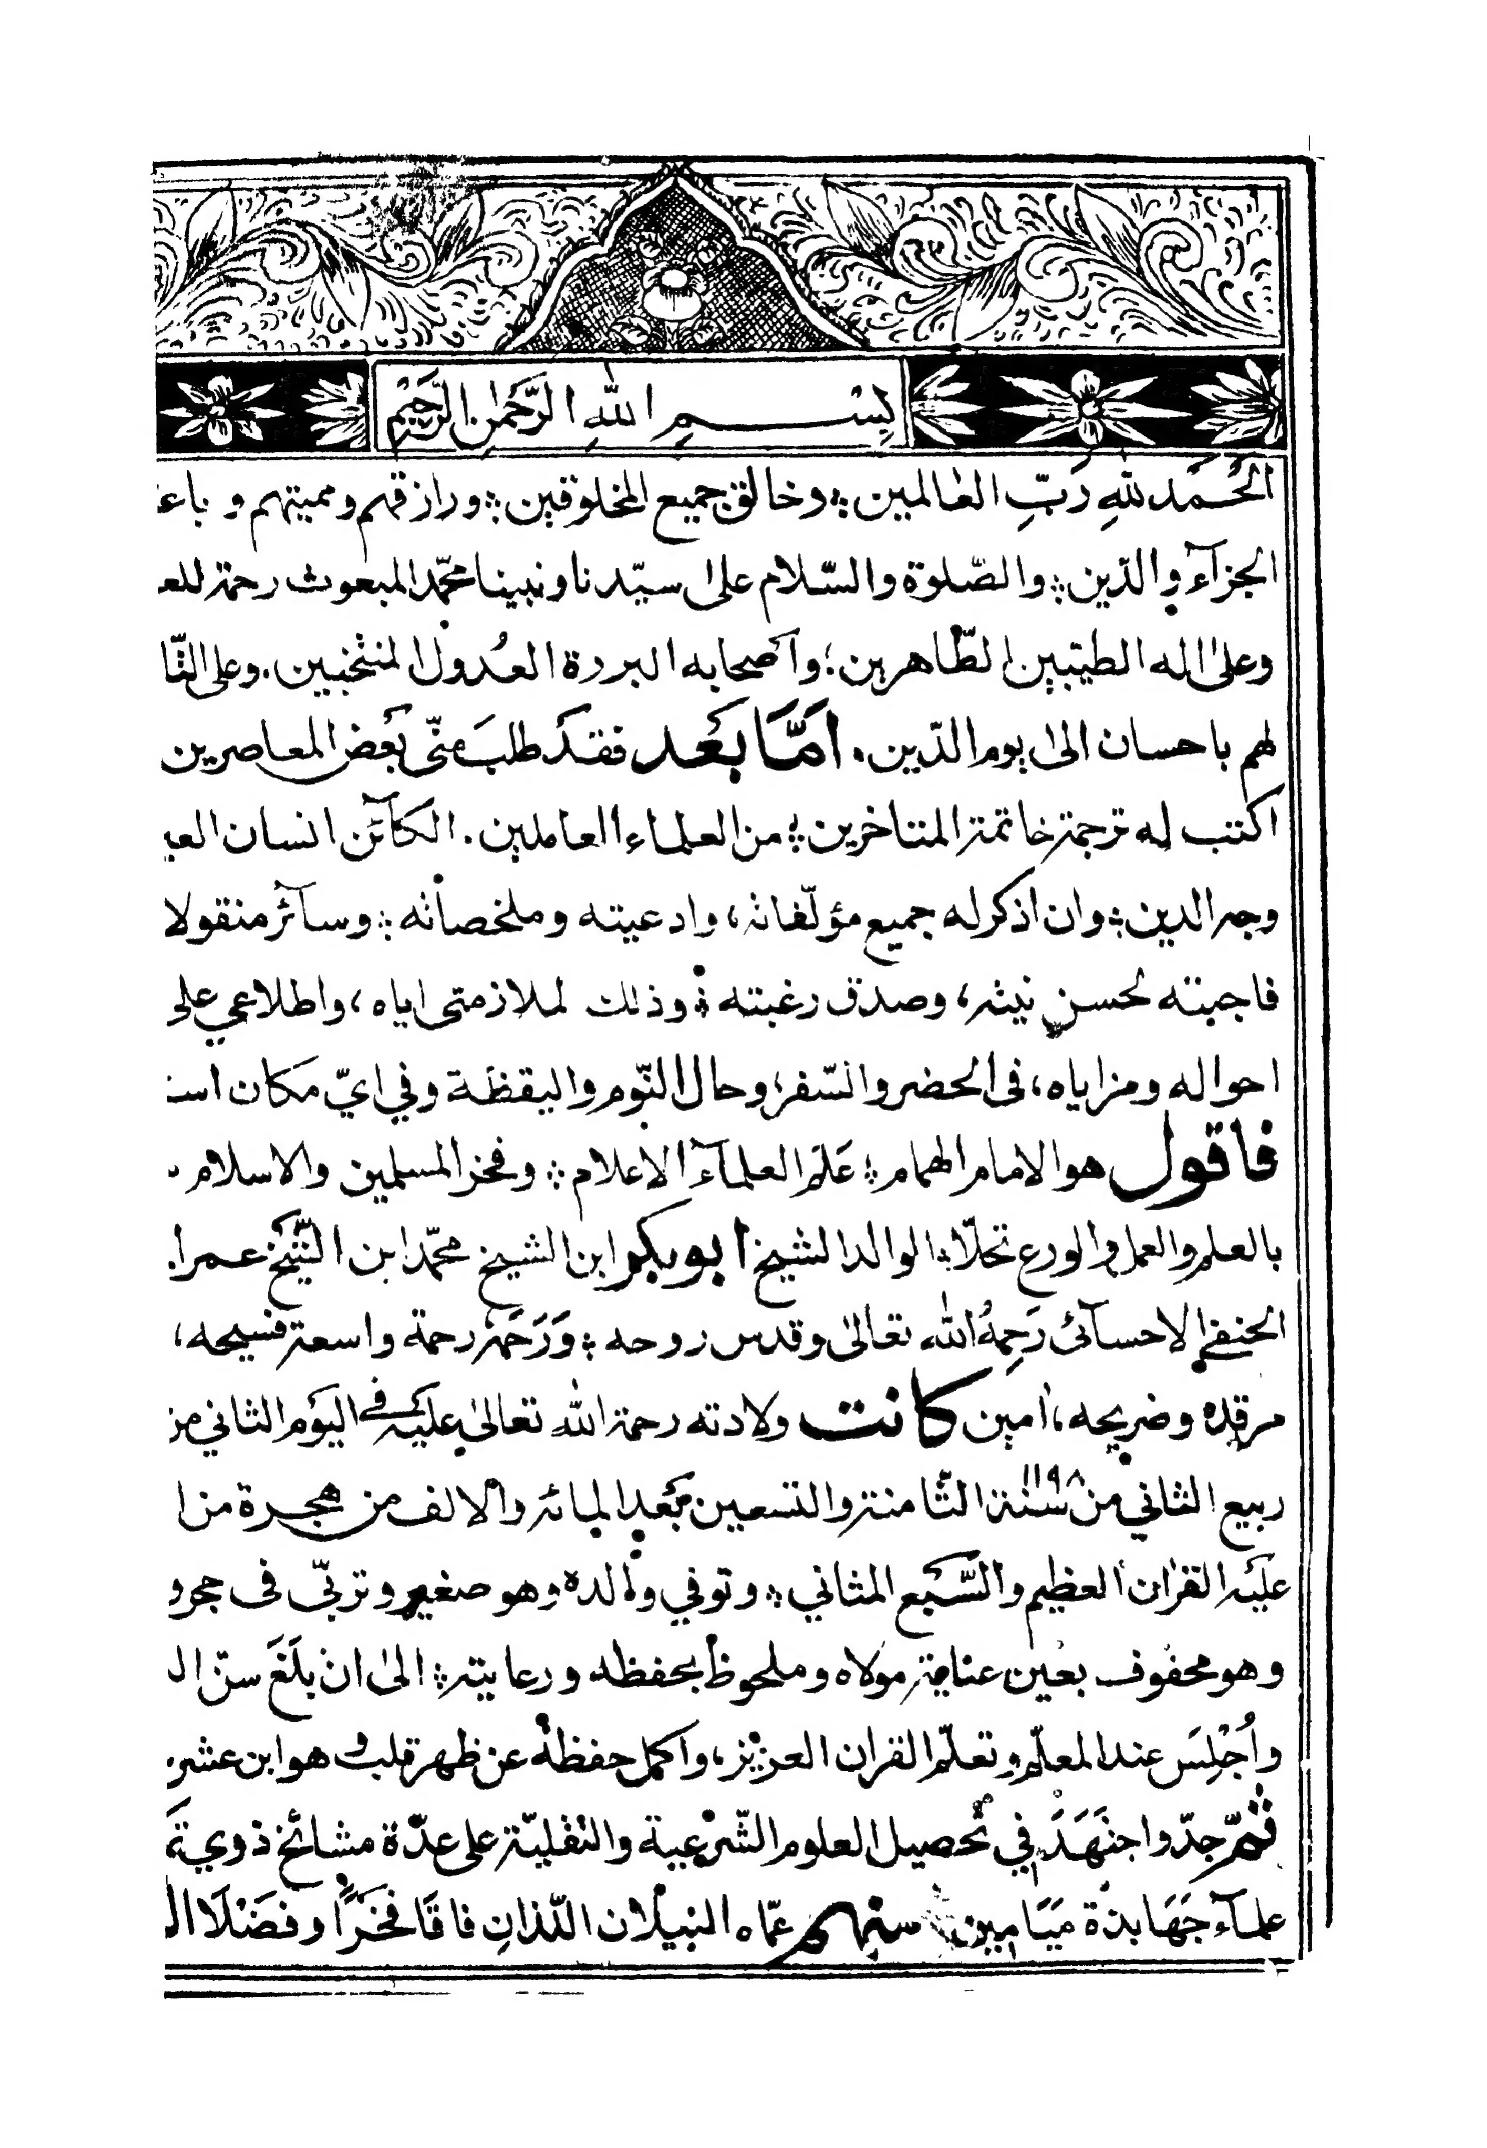 بِسْمِ اللهِ الرَّحْمٰنِ الرَّحِيْمِ
الحَمْد للهِ رَبِّ العٰالمين ؞ وخالق جميع المخلوقين ؞ ورازقهم ومميتهم و
الجزآء والدّين ؞ والصّلوة والسّلام على سيّدنا ونبينا محمّد المبعوث رحمة
وعلىٰ اٰله الطيّبين الطّاهرين ؛ وأصحابه البررة العُدول المنتخبين . وعلى
لهم باحسان الىٰ يوم الدّين . امَّا بَعْد فقد طلبَ منّي بَعْض المعاصرين
اكتب له ترجمة خاتمة المتاخرين ؞ من العلماء العاملين . الكآئن انسان
وجه الدين ؞ وان اذكر له جميع مؤلّفاته ، وادعيته وملخصاته ؞ وسآئر
فاجبته لحسن نيته ، وصدق رغبته ؞ وذلك لملازمتى اياه ، واطلاعي على
احواله ومزاياه ، فى الحضر والسّفر ؛ وحال النّوم واليقظة وفي ايّ مكان
فاقول هو الامام الهمام ؞ عَلَم العلمآء الاعلام ؞ وفخر المسلمين والاسلام
بالعلم والعمل والورع تحلّا ؞ الوالد الشيخ ابوبكر ابن الشيخ محمّد ابن الشّيخ
الحنفي الاحسآئى رَحِمهُ الله تعالىٰ وقدس روحه ؞ وَرَحَمَه رحمة واسعة فسيحه ،
مرقده وضريحه ، اٰمين كانت ولادته رحمة الله تعالىٰ عليْه في اليَوم الثاني من
ربيع الثاني من سنة ١١٩٨ الثّامنة والتسعين بَعْد المائة والالف من هجرة من
عليْه القراٰن العظيم والسَّبْع المثاني ؞ وتوفي والده وهو صغير وتربّى فى
وهو محفوف بعين عناية مولاه وملحوظ بحفظه ورعايته ؞ الىٰ ان بلَغَ سنّ
واُجْلِسَ عند المعلّم وتعلّم القراٰن العزيز ، واكمل حفظهُ عن ظهر قلب وهو ابن
ثمّ جدّ واجتهَدَ في تحصيل العلوم الشّرعية والنقليّة على عدّة مشائخ ذوي
علمآء جَهَابذة مَيَامِين منهم عمّاه النبيلان اللّذانِ فاقَا فخَرًا وفضْلًا